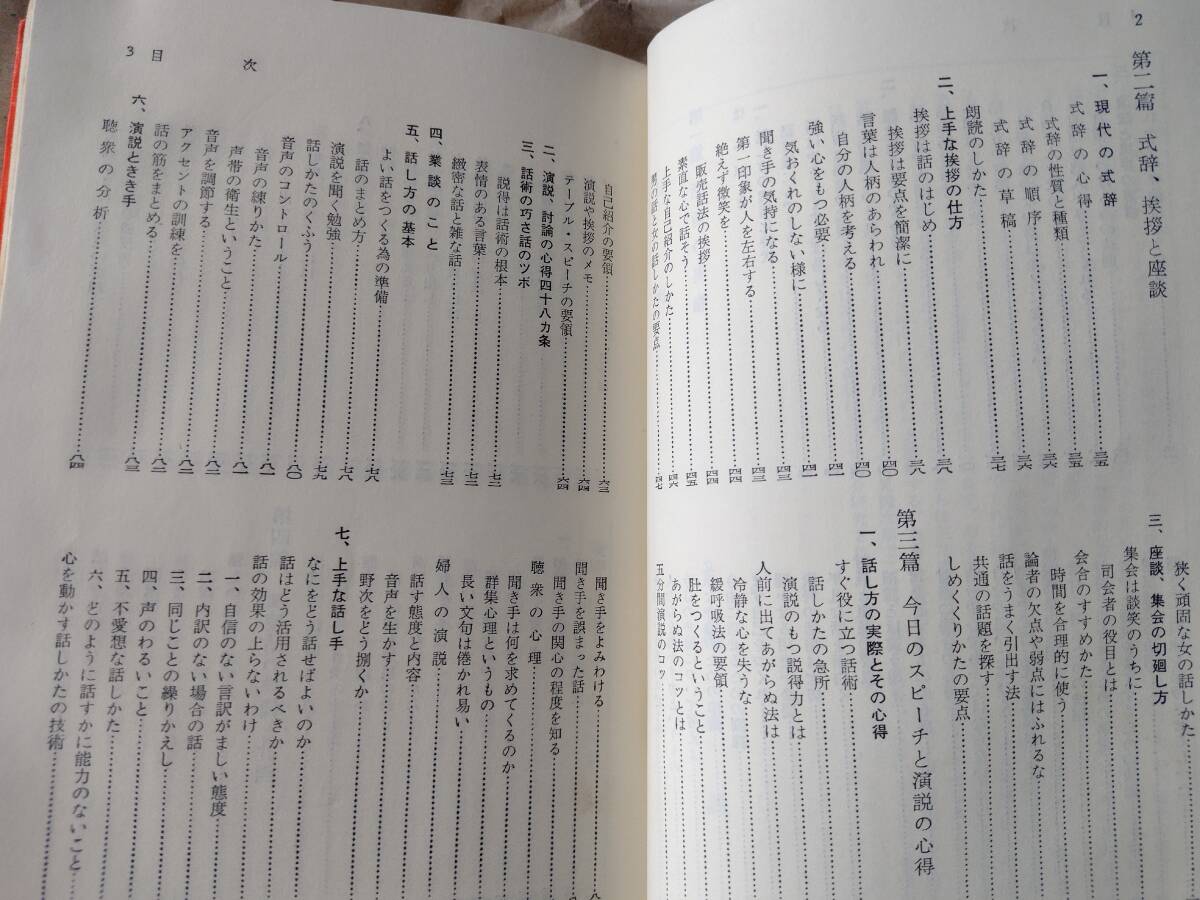 2
第二篇 式辞、挨拶と座談
一、現代の式辞……三五
式辞の心得……三五
式辞の性質と種類……三六
式辞の順序……三六
式辞の草稿……三七
朗読のしかた
二、上手な挨拶の仕方……三八
挨拶は話のはじめ……三八
挨拶は要点を簡潔に……四〇
言葉は人柄のあらわれ……四〇
自分の人柄を考える……四一
強い心をもつ必要……四一
気おくれのしない様に……四三
聞き手の気持になる……四三
第一印象が人を左右する……四四
絶えず微笑を……四四
販売話法の挨拶……四四
素直な心で話そう……四五
上手な自己紹介のしかた……四六
男の話と女の話しかたの要点……四七
狭く頑固な女の話しかた
三、座談、集会の切廻し方
集会は談笑のうちに
司会者の役目とは
会合のすすめかた
時間を合理的に使う
論者の欠点や弱点にはふれるな
話をうまく引出す法
共通の話題を探す
しめくくりかたの要点
第三篇 今日のスピーチと演説の心得
一、話し方の実際とその心得
すぐ役に立つ話術
話しかたの急所
演説のもつ説得力とは
人前に出てあがらぬ法は
冷静な心を失うな
緩呼吸法の要領
肚をつくるということ
あがらぬ法のコツとは
五分間演説のコツ
3 目次
自己紹介の要領……六三
演説や挨拶のメモ……六四
テーブル・スピーチの要領……六四
二、演説、討論の心得四十八カ条
三、話術の巧さ話のツボ
説得は話術の根本……七二
表情のある言葉……七二
緻密な話と雑な話……七三
四、業談のこと
五、話し方の基本
よい話をつくる為の準備
話のまとめ方……七八
演説を聞く勉強……七八
話しかたのくふう……七九
音声のコントロール……八〇
音声の練りかた……八一
声帯の衛生ということ……八一
音声を調節する……八二
アクセントの訓練を……八二
話の筋をまとめる……八二
六、演説ときき手……八三
聴衆の分析……八四
聞き手をよみわける……八
聞き手を誤まった話
聞き手の関心の程度を知る
聴衆の心理
聞き手は何を求めてくるのか
群集心理というもの
長い文句は倦かれ易い
婦人の演説
話す態度と内容
音声を生かす
野次をどう捌くか
七、上手な話し手
なにをどう話せばよいのか
話はどう活用されるべきか
話の効果の上らないわけ
一、自信のない言訳がましい態度
二、内訳のない場合の話
三、同じことの繰りかえし
四、声のわるいこと
五、不愛想な話しかた
六、どのように話すかに能力のないこと
心を動かす話しかたの技術